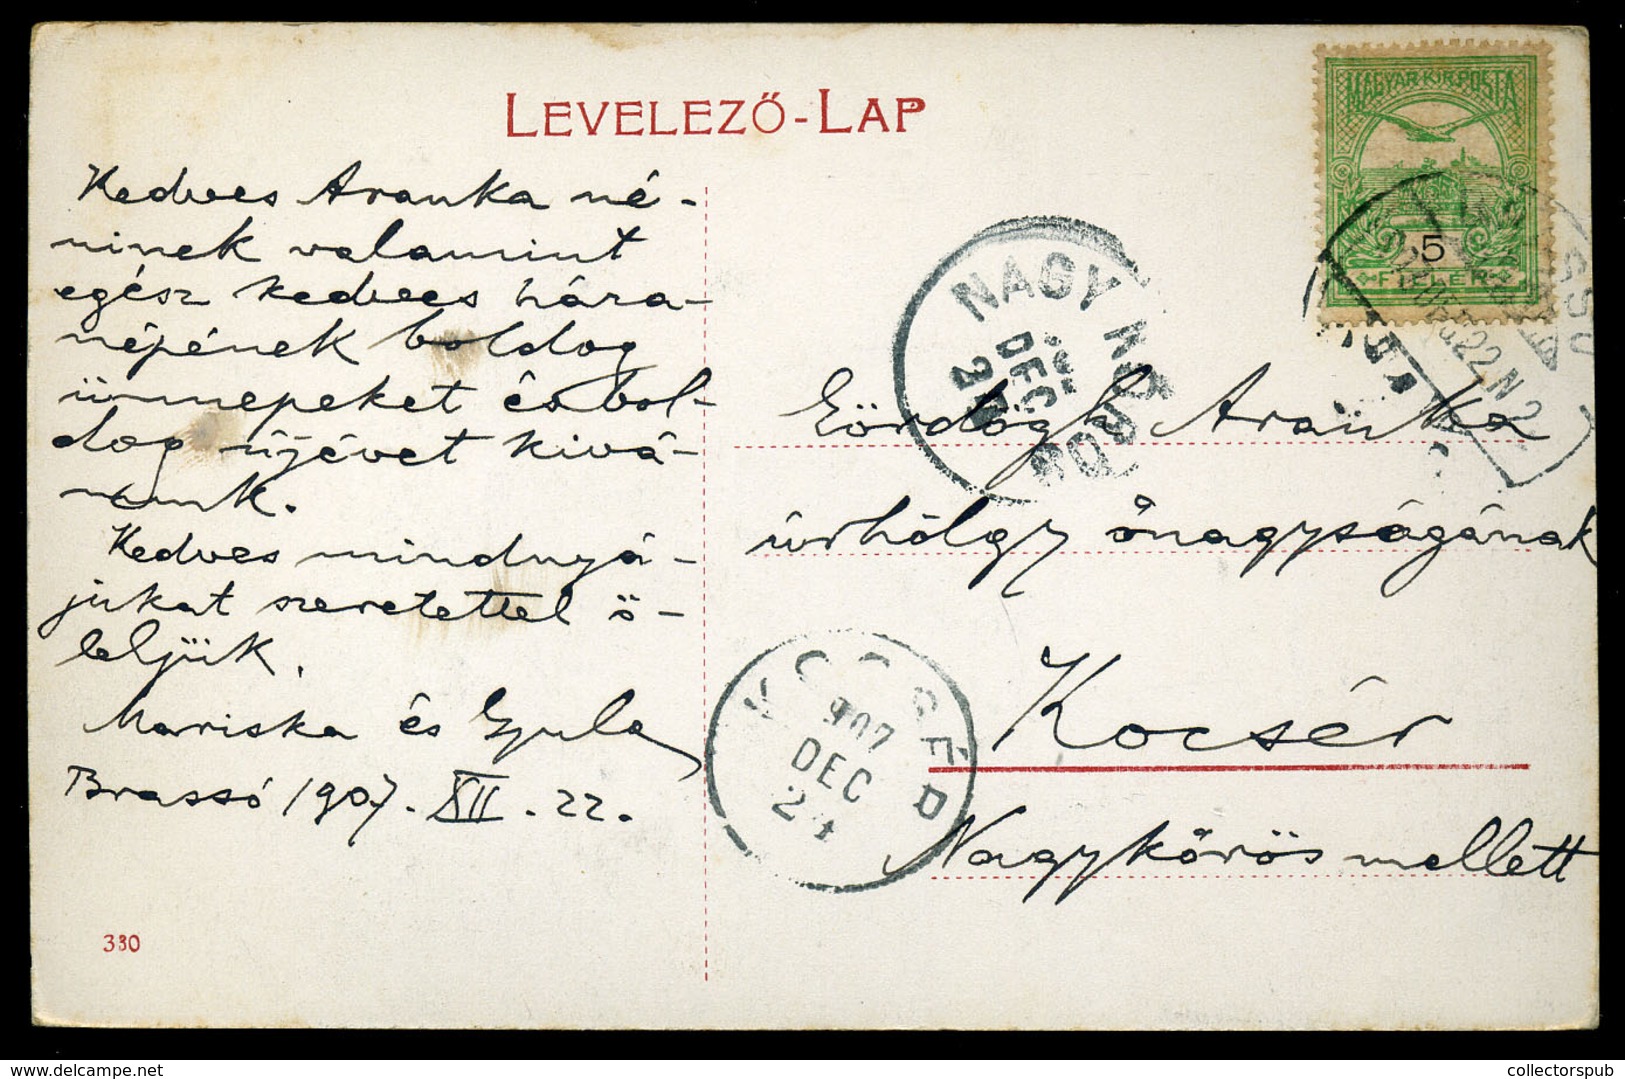 LEVELEZŐ-LAP
MAGYAR KIR. POSTA
5
FILLÉR
Kedves Aranka né-
ninek valamint
egész kedves hára-
népének boldog
ünnepeket és bol-
dog újévet kivá-
nunk.
Kedves mindnyá-
jukat szeretettel ö-
leljük.
Mariska és Gyula
Brassó 1907. XII. 22.
330
NAGY KŐRÖS
DEC
Eördögh Aranka
úrhölgy őnagyságának
Kocsér
Nagykőrös mellett
907
DEC
24
www.delcampe.net
collectorspub